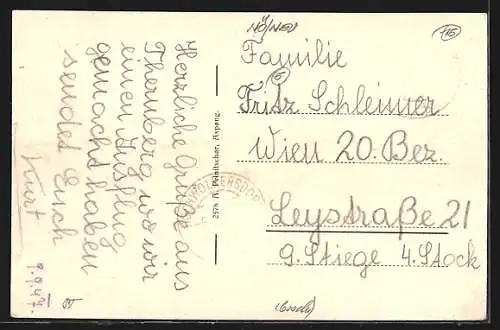 Herzliche Grüße aus
Thernberg wo wir
einen Ausflug
gemacht haben
sendet Euch
Kurt
9.9.47.
2578 Aspang.
NÖ/NEU
Familie
Fritz Schleimer
Wien 20. Bez.
Leystraße 21
9. Stiege 4. Stock